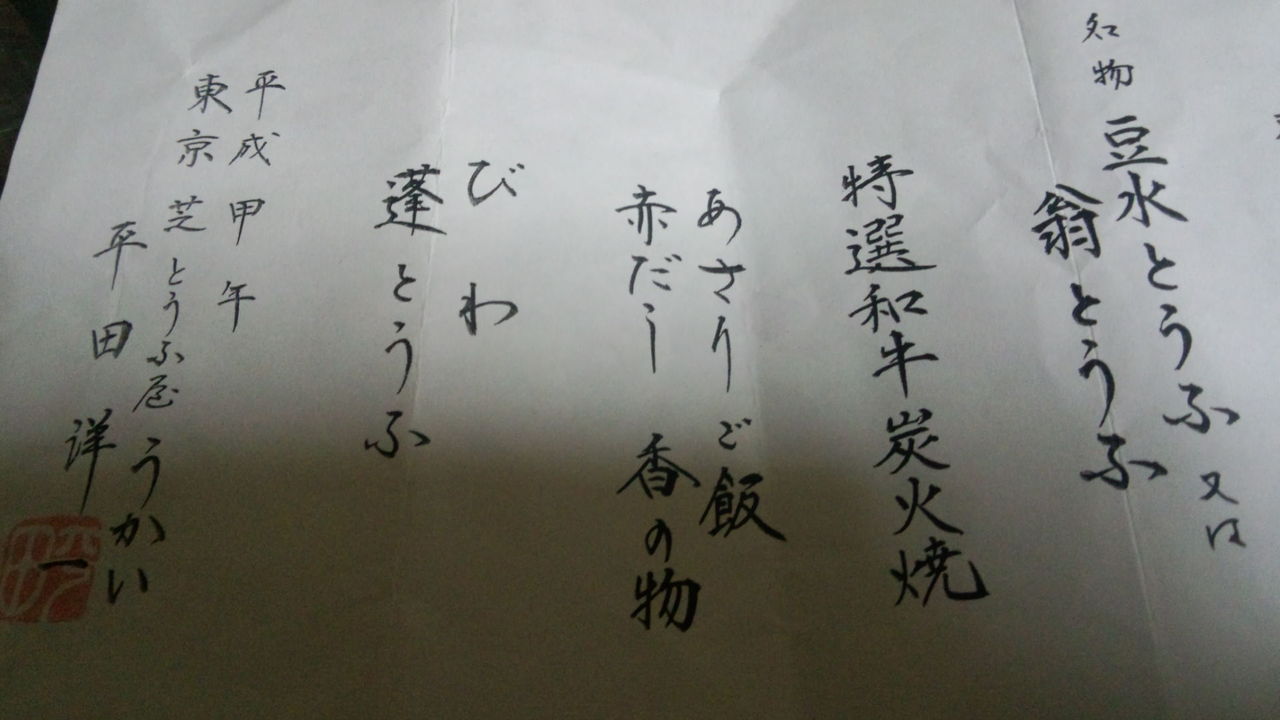 名物 豆水とうふ 又は
翁とうふ
特選和牛炭火焼
あさりご飯
赤だし 香の物
びわ
蓬とうふ
平成 甲午
東京 芝 とうふ屋 うかい
平田 洋一